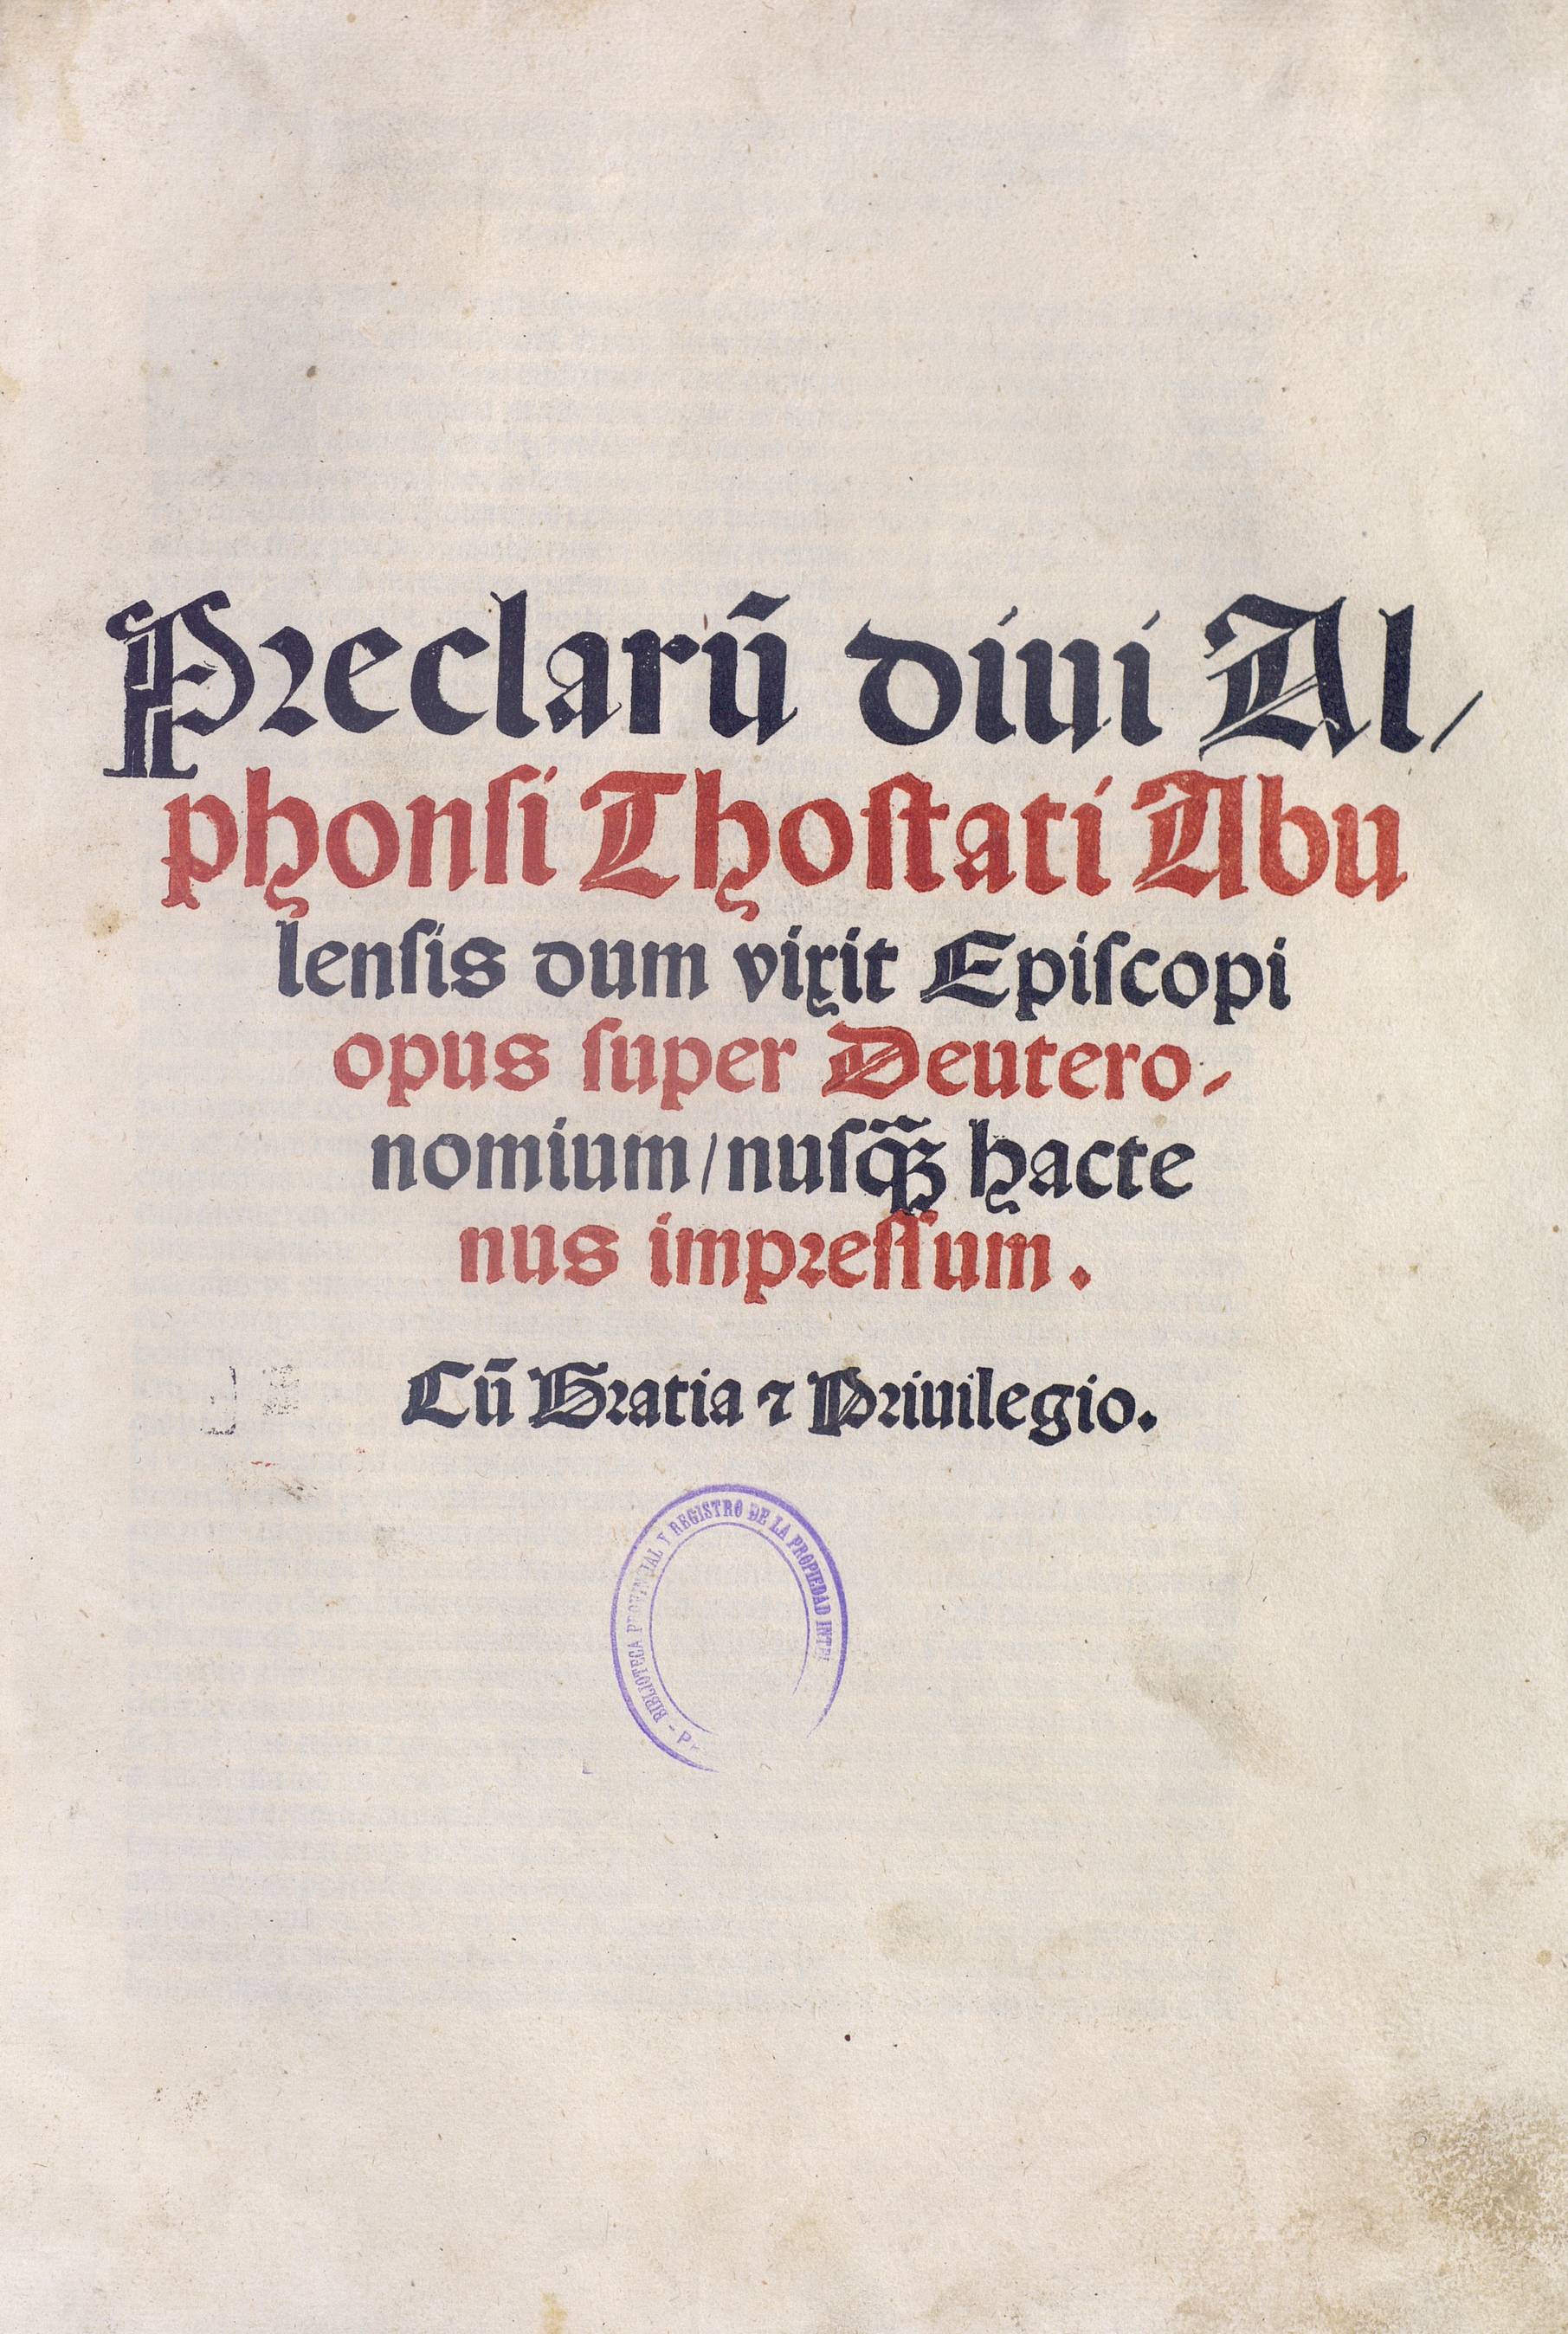 Preclarū diui Al/
phonſi Thoſtati Abu
lenſis dum vixit Epiſcopi
opus ſuper Deutero/
nomium/nuſq̄ꝫ hacte
nus impreſſum.
Cū Gratia ⁊ Priuilegio.
BIBLIOTECA PROVINCIAL Y REGISTRO DE LA PROPIEDAD